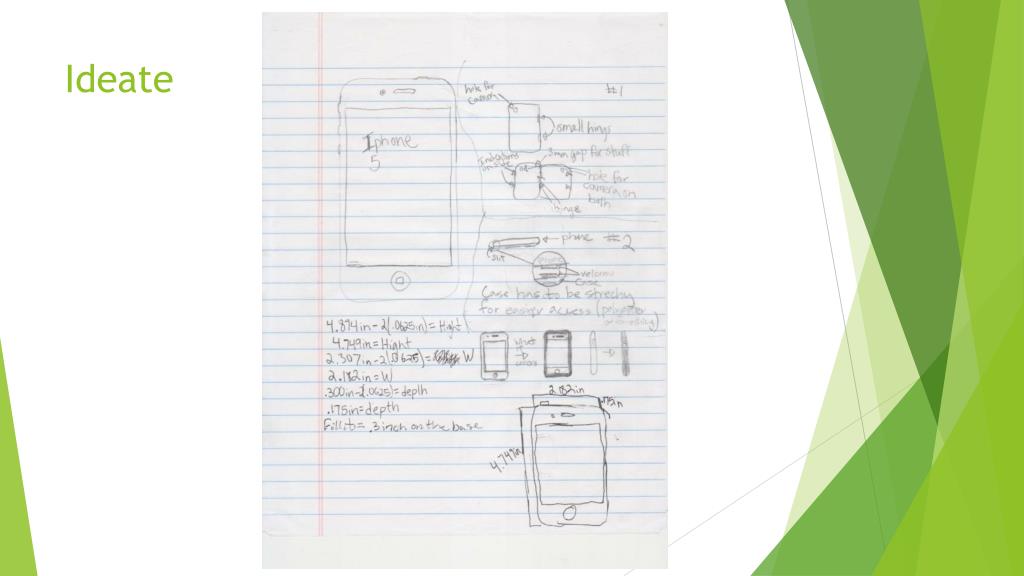 Ideate
Iphone
5
hole for
camera
#1
small hings
3mm gap for stuff
on side
hole for
camera on
both
hings
phone #2
velcro
case
Case has to be strechy
for easyer access (
4.874in-2(.0625in)= Hight
4.749in=Hight
2.307in-2(.0625)= W
2.182in=W
.300in-2(.0625)=depth
.175in=depth
Fillit= .3inch on the base
2.182in
.175in
4.749in